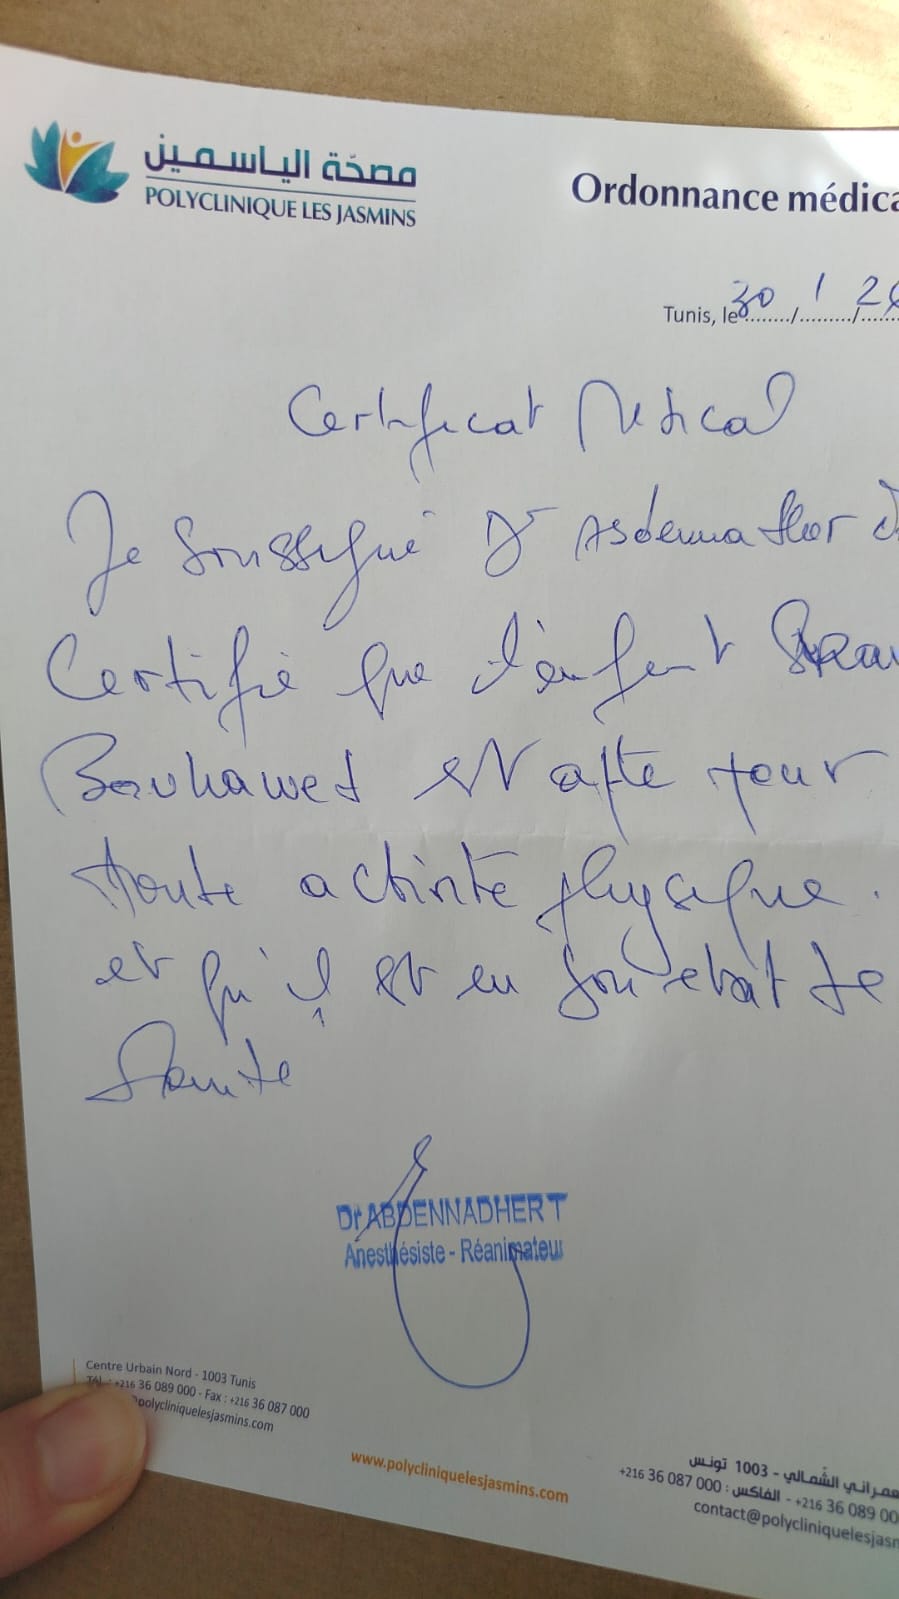 مصحّة الياسمين
POLYCLINIQUE LES JASMINS
Ordonnance médica
Tunis, le 30 / 1 / 2
Certificat Médical
Je soussigné Dr Abdennadher
Certifie que l'enfant
Bouhawet est apte pour
toute activité physique.
et qu'il est en bon etat de
Sante
Dr ABDENNADHER T
Anesthésiste - Réanimateur
Centre Urbain Nord - 1003 Tunis
Tél. : +216 36 089 000 - Fax : +216 36 087 000
@polycliniquelesjasmins.com
www.polycliniquelesjasmins.com
عمراني الشّمالي - 1003 تونس
+216 36 089 00 - الفاكس : 000 087 36 216+
contact@polycliniquelesjasm